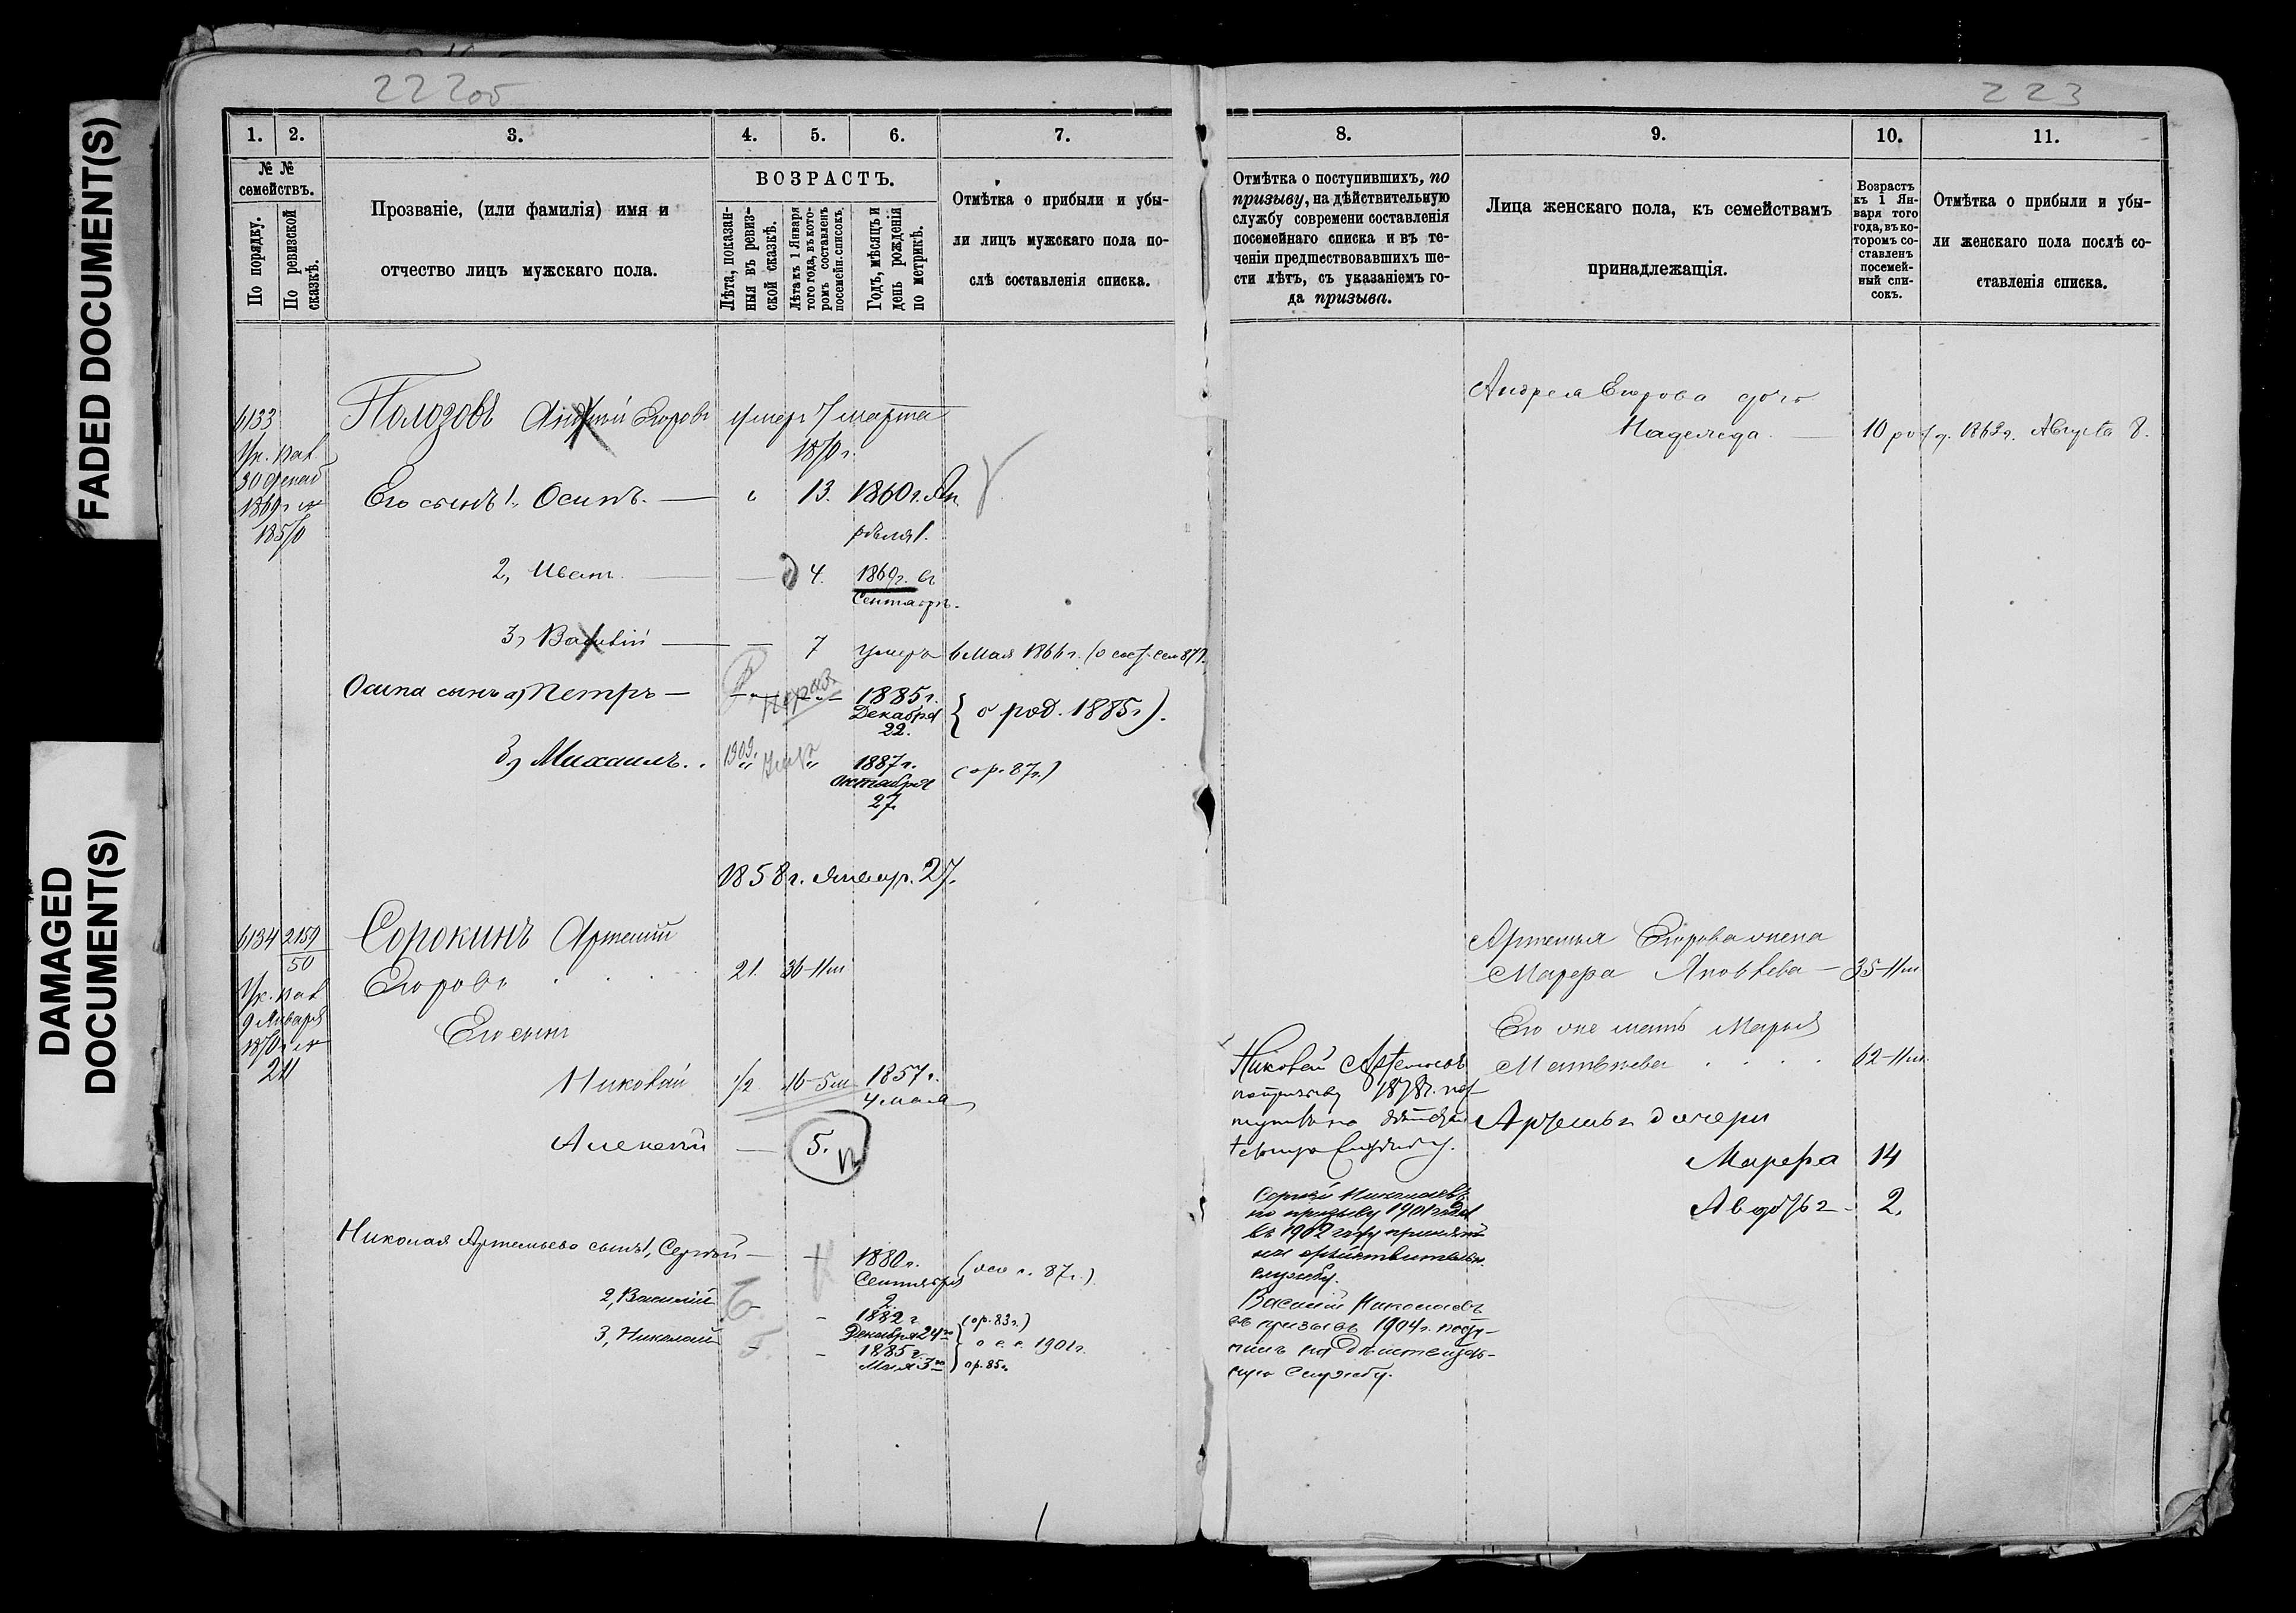 FADED DOCUMENT(S)
DAMAGED
DOCUMENT(S)
222об
1. 2. 3. 4. 5. 6. 7.
№ №
семействъ.
По порядку.
По ревизской
сказкѣ.
Прозваніе, (или фамилія) имя и
отчество лицъ мужскаго пола.
ВОЗРАСТЪ.
Лѣта, показан-
ныя въ ревиз-
ской сказкѣ.
Лѣта къ 1 Января
того года, въ кото-
ромъ составленъ
посемейн. списокъ.
Годъ, мѣсяцъ и
день рожденія
по метрикѣ.
Отмѣтка о прибыли и убы-
ли лицъ мужскаго пола по-
слѣ составленія списка.
6133 Полозовъ Егоровъ умеръ 7 марта
1870 г.
30
1869 г.
Его сынъ 1, Осипъ. 13. 1860 г. Ап
рѣля 1.
2, Иванъ. 4. 1869 г.
Сентябрь.
3, 7 умеръ 6 Мая 1866 г.
Осипа сынъ Петръ 1885 г.
Декабря
22.
о род. 1885 г).
Михаилъ. 1909. 1887 г.
октября
27.
(о р. 87 г.)
1858 г. Январ. 27.
6134 2159
50
Сорокинъ Артемій
Егоровъ 21. 36
9 Января
1870 г.
211
Его сынъ
Николай 1/2 16 1857 г.
4 мая
Алексѣй 5.
Николая Артемьева сынъ 1, Сергѣй 1880 г.
Сентября
2.
87 г.)
2, Василій 1882 г.
Декабря 24го
(о р. 83 г.)
3, Николай 1885 г.
Мая 3го
1901 г.
о р. 85 г.
223
8. 9. 10. 11.
Отмѣтка о поступившихъ, по
призыву, на дѣйствительную
службу современи составленія
посемейнаго списка и въ те-
ченіи предшествовавшихъ ше-
сти лѣтъ, съ указаніемъ го-
да призыва.
Лица женскаго пола, къ семействамъ
принадлежащія.
Возрастъ
къ 1 Ян-
варя того
года, въ ко-
торомъ со-
ставленъ
посемей-
ный спи-
сокъ.
Отмѣтка о прибыли и убы-
ли женскаго пола послѣ со-
ставленія списка.
Андрея Егорова дочь
Надежда. 10 Августа 8.
Артемья Егорова жена
Марфа Яковлева 35
Его же мать Марья
Матвѣева 62
Николай Артемьевъ
по призыву 1878 г. пос-
Артемья дочери
Марфа 14
2.
Сергѣй Николаевъ
по призыву 1901 года
въ 1902 году принятъ
на дѣйствительн.
службу.
Василій Николаевъ
въ призывъ 1904 г. посту-
пилъ на Дѣйствитель-
ную Службу.